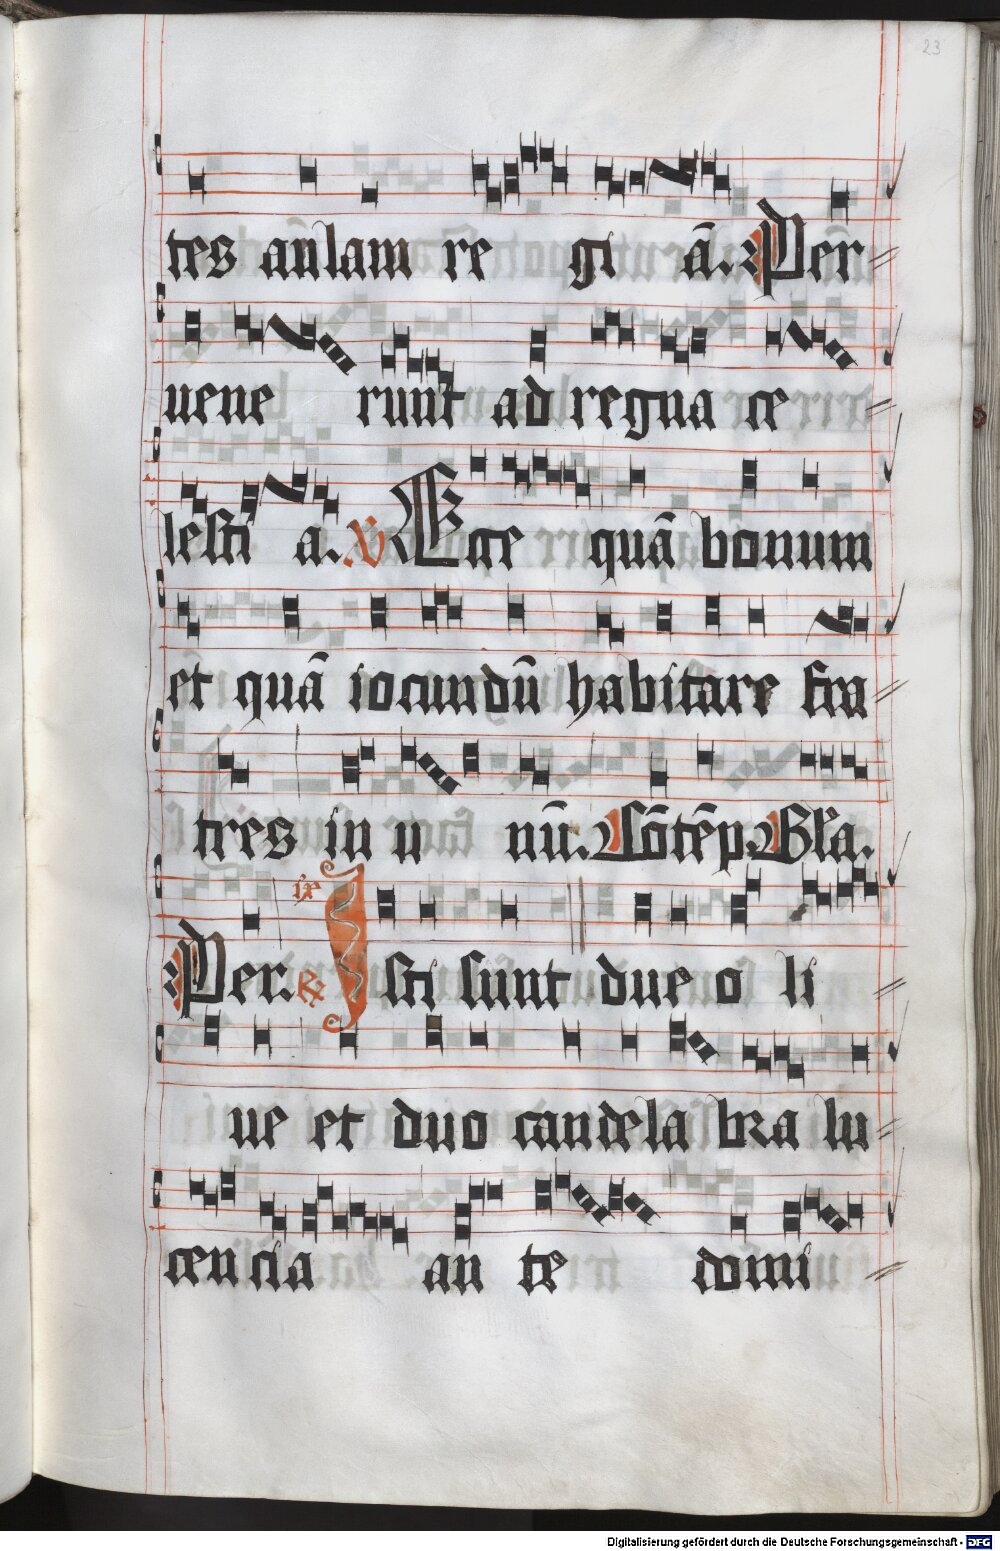 23
tes aulam re gi ā. Per⸗
uene runt ad regna ce⸗
lesti a. v Ecce quā bonum
et quā iocundū habitare fra⸗
tres in u nū. Cōtēp. Gl'a.
ix
Per. R Isti sunt due o li⸗
ue et duo candela bra lu⸗
cencia an te domi⸗
Digitalisierung gefördert durch die Deutsche Forschungsgemeinschaft - DFG